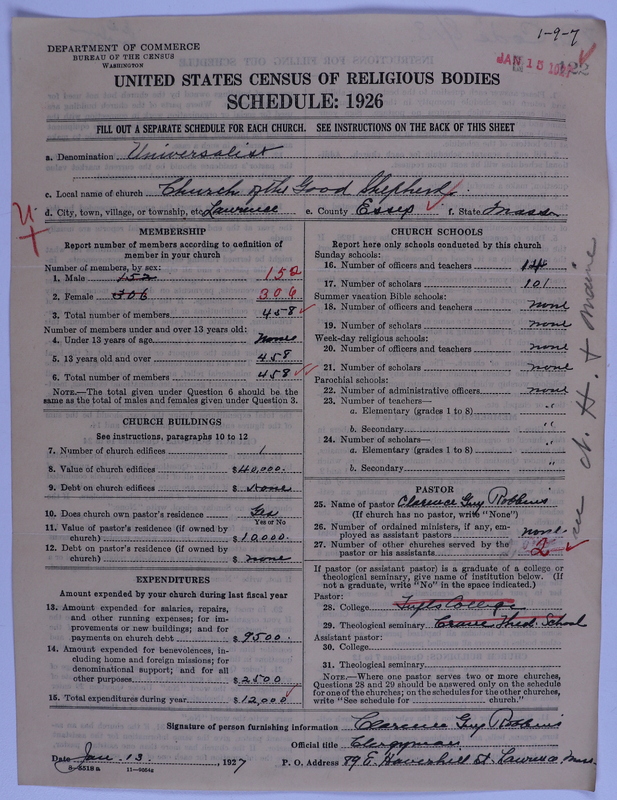 1-9-7
DEPARTMENT OF COMMERCE
BUREAU OF THE CENSUS
WASHINGTON
JAN 15 1927
UNITED STATES CENSUS OF RELIGIOUS BODIES
SCHEDULE: 1926
FILL OUT A SEPARATE SCHEDULE FOR EACH CHURCH. SEE INSTRUCTIONS ON THE BACK OF THIS SHEET
a. Denomination Universalist
c. Local name of church Church of the Good Shepherd
d. City, town, village, or township, etc. Lawrence e. County Essex f. State Mass
MEMBERSHIP
Report number of members according to definition of
member in your church
Number of members, by sex:
1. Male 152 152
2. Female 306 306
3. Total number of members 458
Number of members under and over 13 years old:
4. Under 13 years of age None
5. 13 years old and over 458
6. Total number of members 458
NOTE.—The total given under Question 6 should be
same as the total of males and females given under Question 3.
CHURCH BUILDINGS
See instructions, paragraphs 10 to 12
7. Number of church edifices 1
8. Value of church edifices $40,000.
9. Debt on church edifices $ None
10. Does church own pastor's residence Yes
Yes or No
11. Value of pastor's residence (if owned by
church) $10,000.
12. Debt on pastor's residence (if owned by
church) $ none
EXPENDITURES
Amount expended by your church during last fiscal year
13. Amount expended for salaries, repairs,
and other running expenses; for im-
provements or new buildings; and for
payments on church debt $ 9500.
14. Amount expended for benevolences, in-
cluding home and foreign missions; for
denominational support; and for all
other purposes $2500
15. Total expenditures during year $12,000
CHURCH SCHOOLS
Report here only schools conducted by this church
Sunday schools:
16. Number of officers and teachers 14
17. Number of scholars 101
Summer vacation Bible schools:
18. Number of officers and teachers none
19. Number of scholars none
Week-day religious schools:
20. Number of officers and teachers none
21. Number of scholars none
Parochial schools:
22. Number of administrative officers none
23. Number of teachers—
a. Elementary (grades 1 to 8) "
b. Secondary "
24. Number of scholars—
a. Elementary (grades 1 to 8) "
b. Secondary "
PASTOR
25. Name of pastor Clarence Guy Robbins
(If church has no pastor, write "None")
26. Number of ordained ministers, if any, em-
ployed as assistant pastors none
27. Number of other churches served by the
pastor or his assistants 2
If pastor (or assistant pastor) is a graduate of a college or
theological seminary, give name of institution below. (If
not a graduate, write "No" in the space indicated.)
Pastor:
28. College Tufts College
29. Theological seminary Crane Theol. School
Assistant pastor:
30. College
31. Theological seminary
NOTE.—Where one pastor serves two or more churches,
Questions 28 and 29 should be answered only on the schedule
for one of the churches; on the schedules for the other churches,
write "See schedule for church."
See N. H. + Maine
Signature of person furnishing information Clarence Guy Robbins
Official title Clergyman
Date Jan. 13, 1927 P. O. Address 89 E. Haverhill St. Lawrence, Mass.
8-5518a 11-9054a